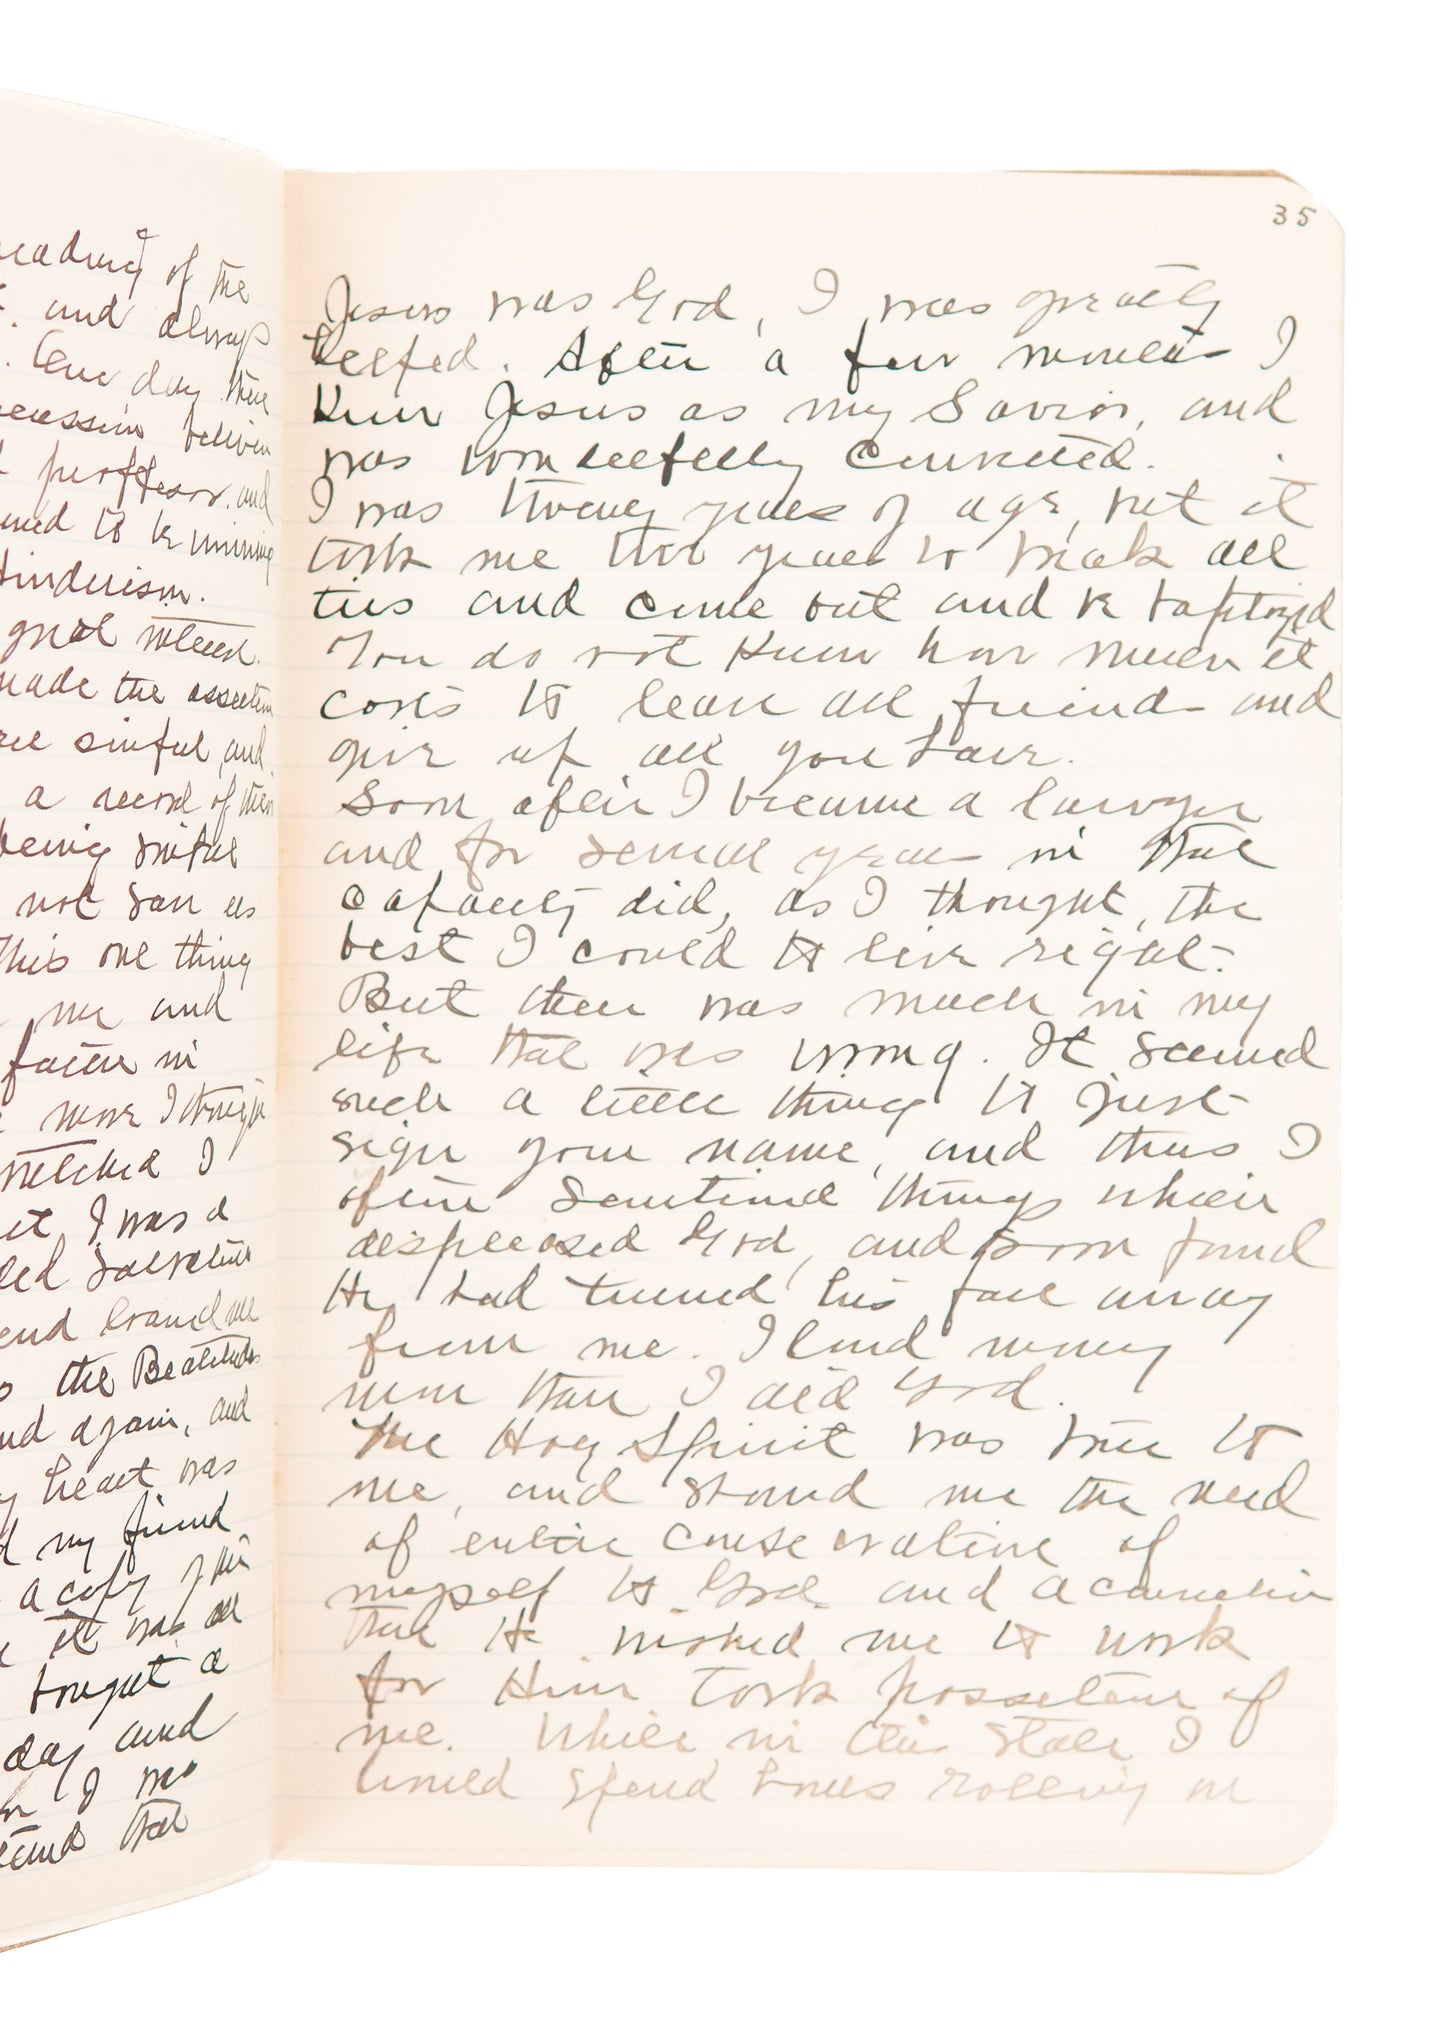 reading of the
and always
One day there
between
professor and
to be winning
Hinduism.
great interest.
made the assertion
sinful and
a record of their
being sinful
not son as
This one thing
me and
faith in
more I thought
wretched I
I was a
called Socrates
lend me
the Beatitudes
and again, and
heart was
my friend
a copy of the
it was all
bought a
day and
I was
that
35
Jesus was God, I was greatly
helped. After a few months I
knew Jesus as my Savior, and
was wonderfully converted.
I was twenty years of age, but it
took me two years to break all
ties and come out and be baptized
You do not know how much it
costs to leave all friends and
give up all you have.
Soon after I became a lawyer
and for several years in that
capacity did, as I thought, the
best I could to live right.
But there was much in my
life that was wrong. It seemed
such a little thing to just
sign your name, and thus I
often sanctioned things which
displeased God, and soon found
He had turned his face away
from me. I loved money
more than I did God.
The Holy Spirit was true to
me, and showed me the need
of entire consecration of
myself to God and a conviction
that He wished me to work
for Him took possession of
me. While in this state I
would spend hours rolling on